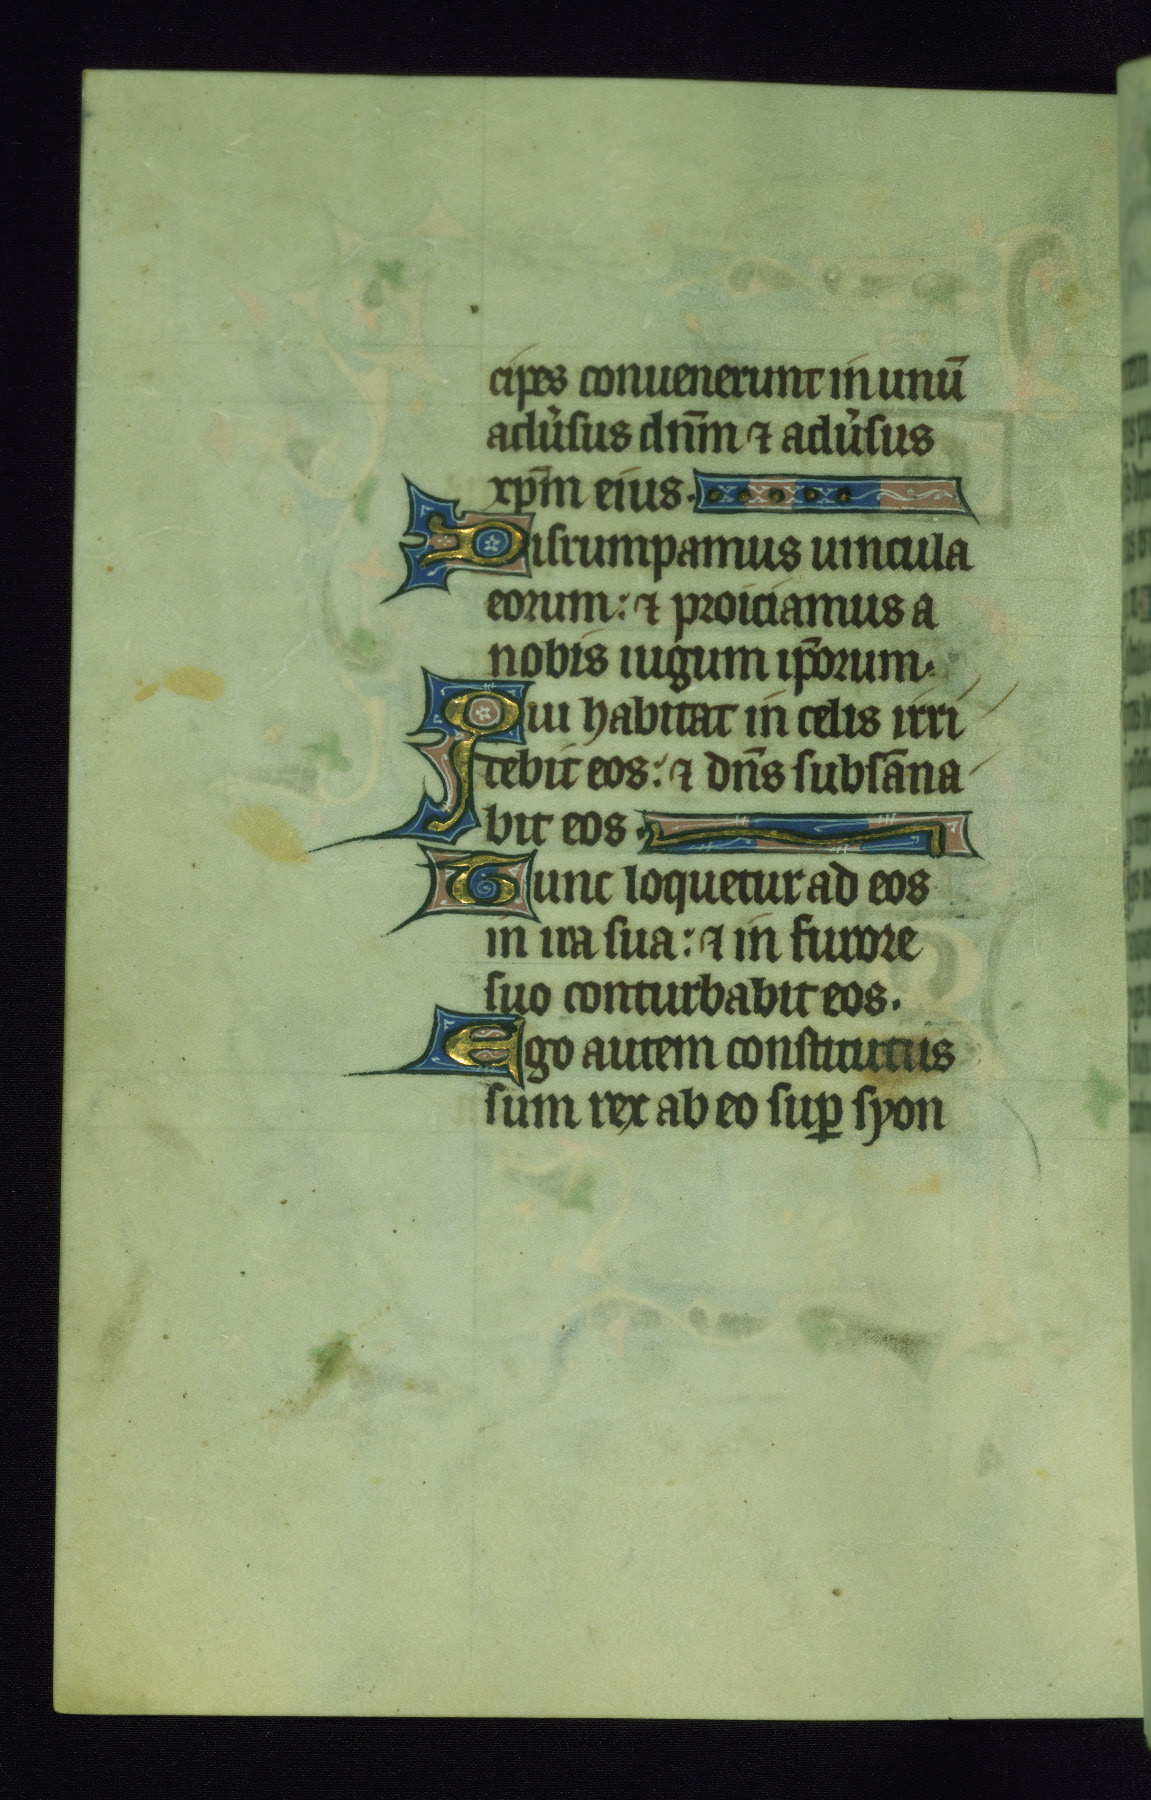 cipes conuenerunt in unū
adu̓sus dn̄m ⁊ adu̓sus
xp̄m eius.
Disrumpamus uincula
eorum: ⁊ proiciamus a
nobis iugum ip̄orum.
Qui habitat in celis irri
debit eos: ⁊ dn̄s subsāna
bit eos.
Tunc loquetur ad eos
in ira sua: ⁊ in furore
suo conturbabit eos.
Ego autem constitutus
sum rex ab eo suꝑ syon